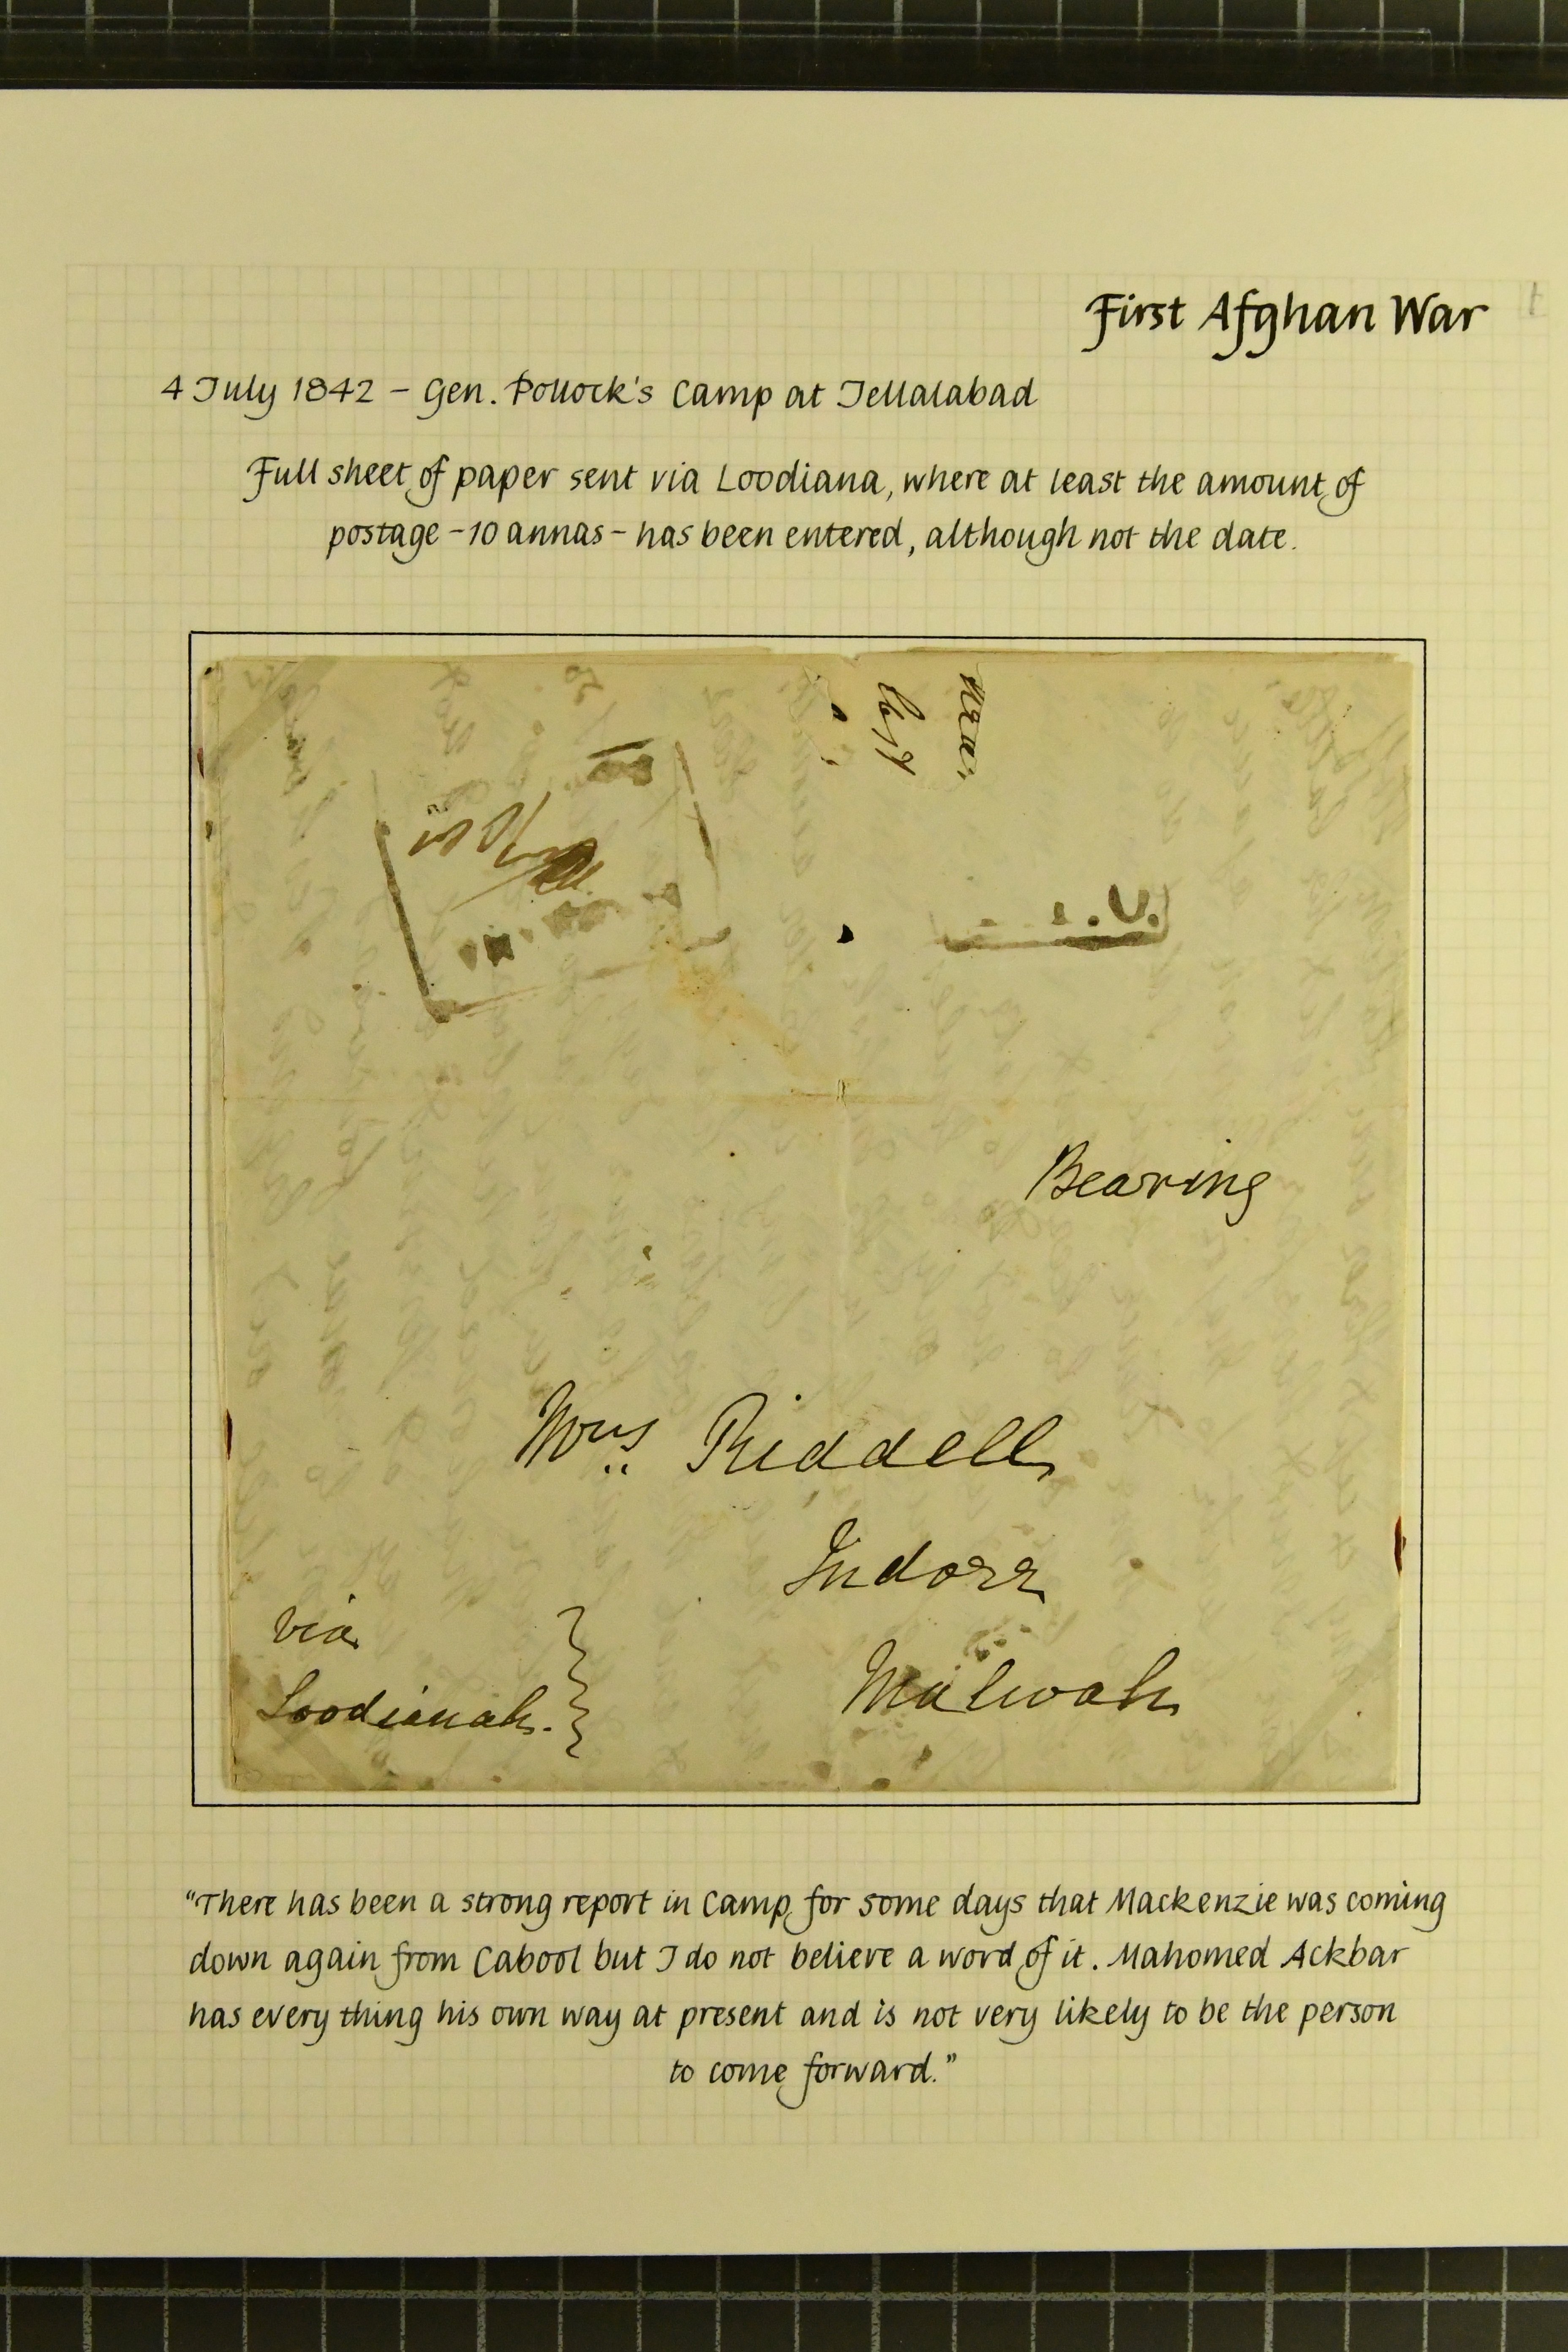 First Afghan War
4 July 1842 – Gen. Pollock's Camp at Jellalabad
Full sheet of paper sent via Loodiana, where at least the amount of
postage – 10 annas – has been entered, although not the date.
Bearing
Mrs Riddell
Indore
Malwah
via
Loodianah.
"There has been a strong report in Camp for some days that Mackenzie was coming
down again from Cabool but I do not believe a word of it. Mahomed Ackbar
has every thing his own way at present and is not very likely to be the person
to come forward."